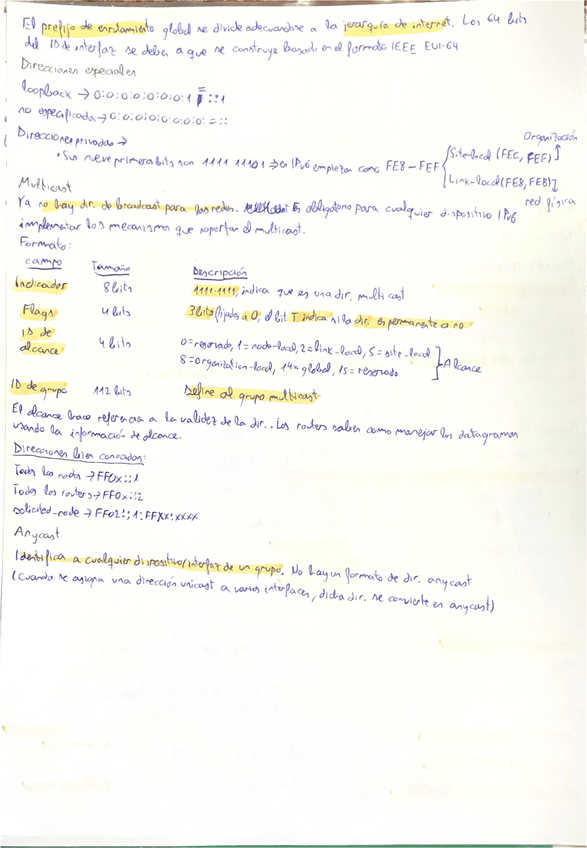 El prefijo de enrutamiento global se divide adecuandose a la jerarquía de internet. Los 64 bits
del ID de interfaz se deben a que se construye basado en el formato IEEE EUI-64
Direcciones especiales
loopback → 0:0:0:0:0:0:0:1 = ::1
no especificada → 0:0:0:0:0:0:0:0: = ::
Organización
Direcciones privadas →
• Sus nueve primeros bits son 1111 11101 → en IPv6 empiezan como FE8 - FEF
Site-local (FEC, FEF)
Link-local (FE8, FEB)
red física
Multicast
Ya no hay dir. de broadcast para las redes. Es obligatorio para cualquier dispositivo IPv6
implementar los mecanismos que soportan el multicast.
Formato:
campo Tamaño Descripción
Indicador 8 bits 1111.1111, indica que es una dir. multicast
Flags 4 bits 3 bits fijados a 0, el bit T indica si la dir. es permanente o no
ID de alcance 4 bits 0=reservado, 1=nodo-local, 2=link-local, 5=site-local
8=organization-local, 14=global, 15=reservado
Alcance
ID de grupo 112 bits Define al grupo multicast
El alcance hace referencia a la validez de la dir.. Los routers saben como manejar los datagramas
usando la información de alcance.
Direcciones bien conocidas:
Todos los nodos → FF0x::1
Todos los routers → FF0x::2
solicited-node → FF02::1:FFXX:XXXX
Anycast
Identifica a cualquier dispositivo/interfaz de un grupo. No hay un formato de dir. anycast
(Cuando se asigna una dirección unicast a varias interfaces, dicha dir. se convierte en anycast)